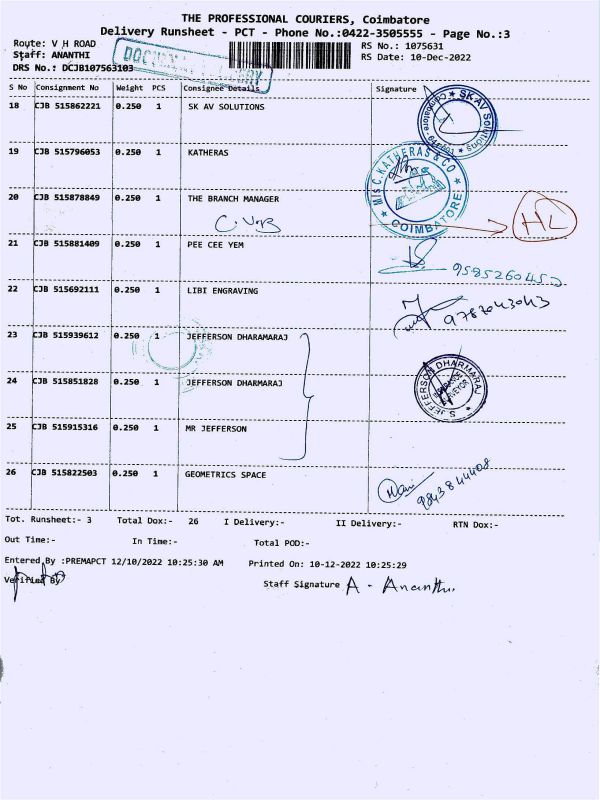 THE PROFESSIONAL COURIERS, Coimbatore
Delivery Runsheet - PCT - Phone No.:0422-3505555 - Page No.:3
Route: V H ROAD RS No.: 1075631
Staff: ANANTHI RS Date: 10-Dec-2022
DRS No.: DCJB107563103
S No Consignment No Weight PCS Consignee Details Signature
18 CJB 515862221 0.250 1 SK AV SOLUTIONS
SK AV Solutions
19 CJB 515796053 0.250 1 KATHERAS
M/S C. KATHERAS & CO COIMBATORE
20 CJB 515878849 0.250 1 THE BRANCH MANAGER
HL
21 CJB 515881409 0.250 1 PEE CEE YEM
22 CJB 515692111 0.250 1 LIBI ENGRAVING
23 CJB 515939612 0.250 1 JEFFERSON DHARAMARAJ
24 CJB 515851828 0.250 1 JEFFERSON DHARMARAJ
S. JEFFERSON DHARMARAJ SURVEYOR
25 CJB 515915316 0.250 1 MR JEFFERSON
26 CJB 515822503 0.250 1 GEOMETRICS SPACE
9843844408
Tot. Runsheet:- 3 Total Dox:- 26 I Delivery:- II Delivery:- RTN Dox:-
Out Time:- In Time:- Total POD:-
Entered By :PREMAPCT 12/10/2022 10:25:30 AM Printed On: 10-12-2022 10:25:29
Verified By Staff Signature A. Ananthi.